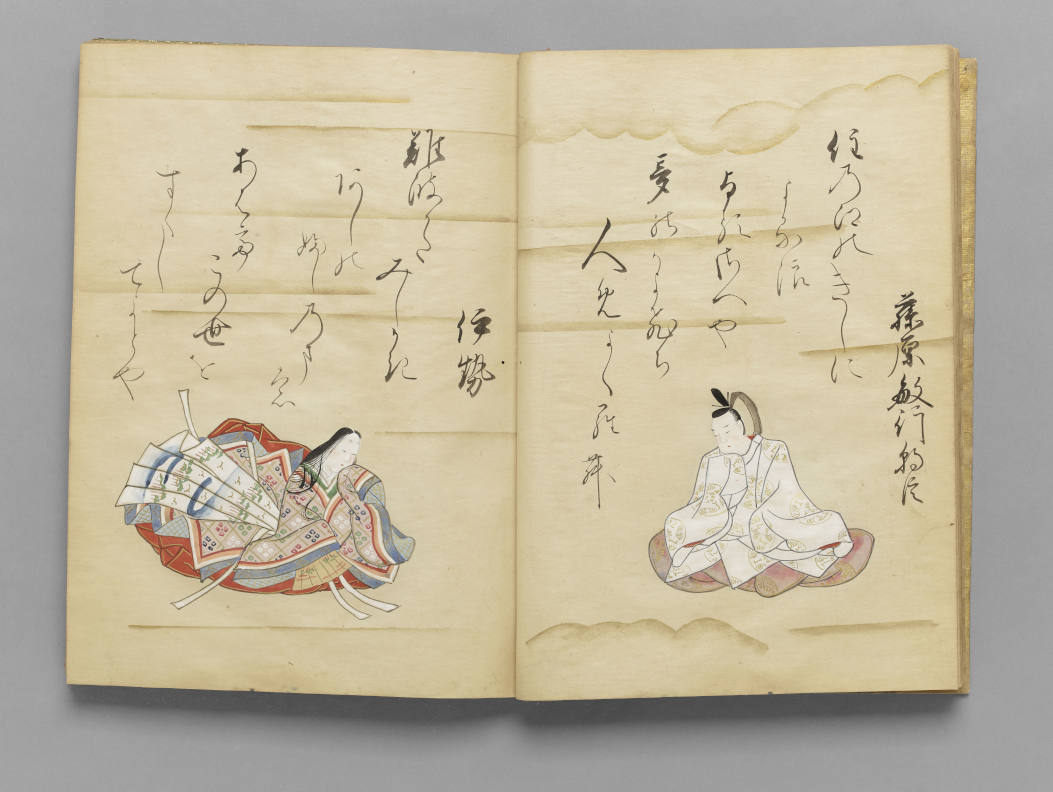 藤原敏行朝臣
住乃江能きしに
よる浪
よるさへや
夢能かよひち
人免よくら無
伊勢
難波かた
みしかき
阿し能
婦し乃ま
も
あハて
この世を
すくし
てよとや